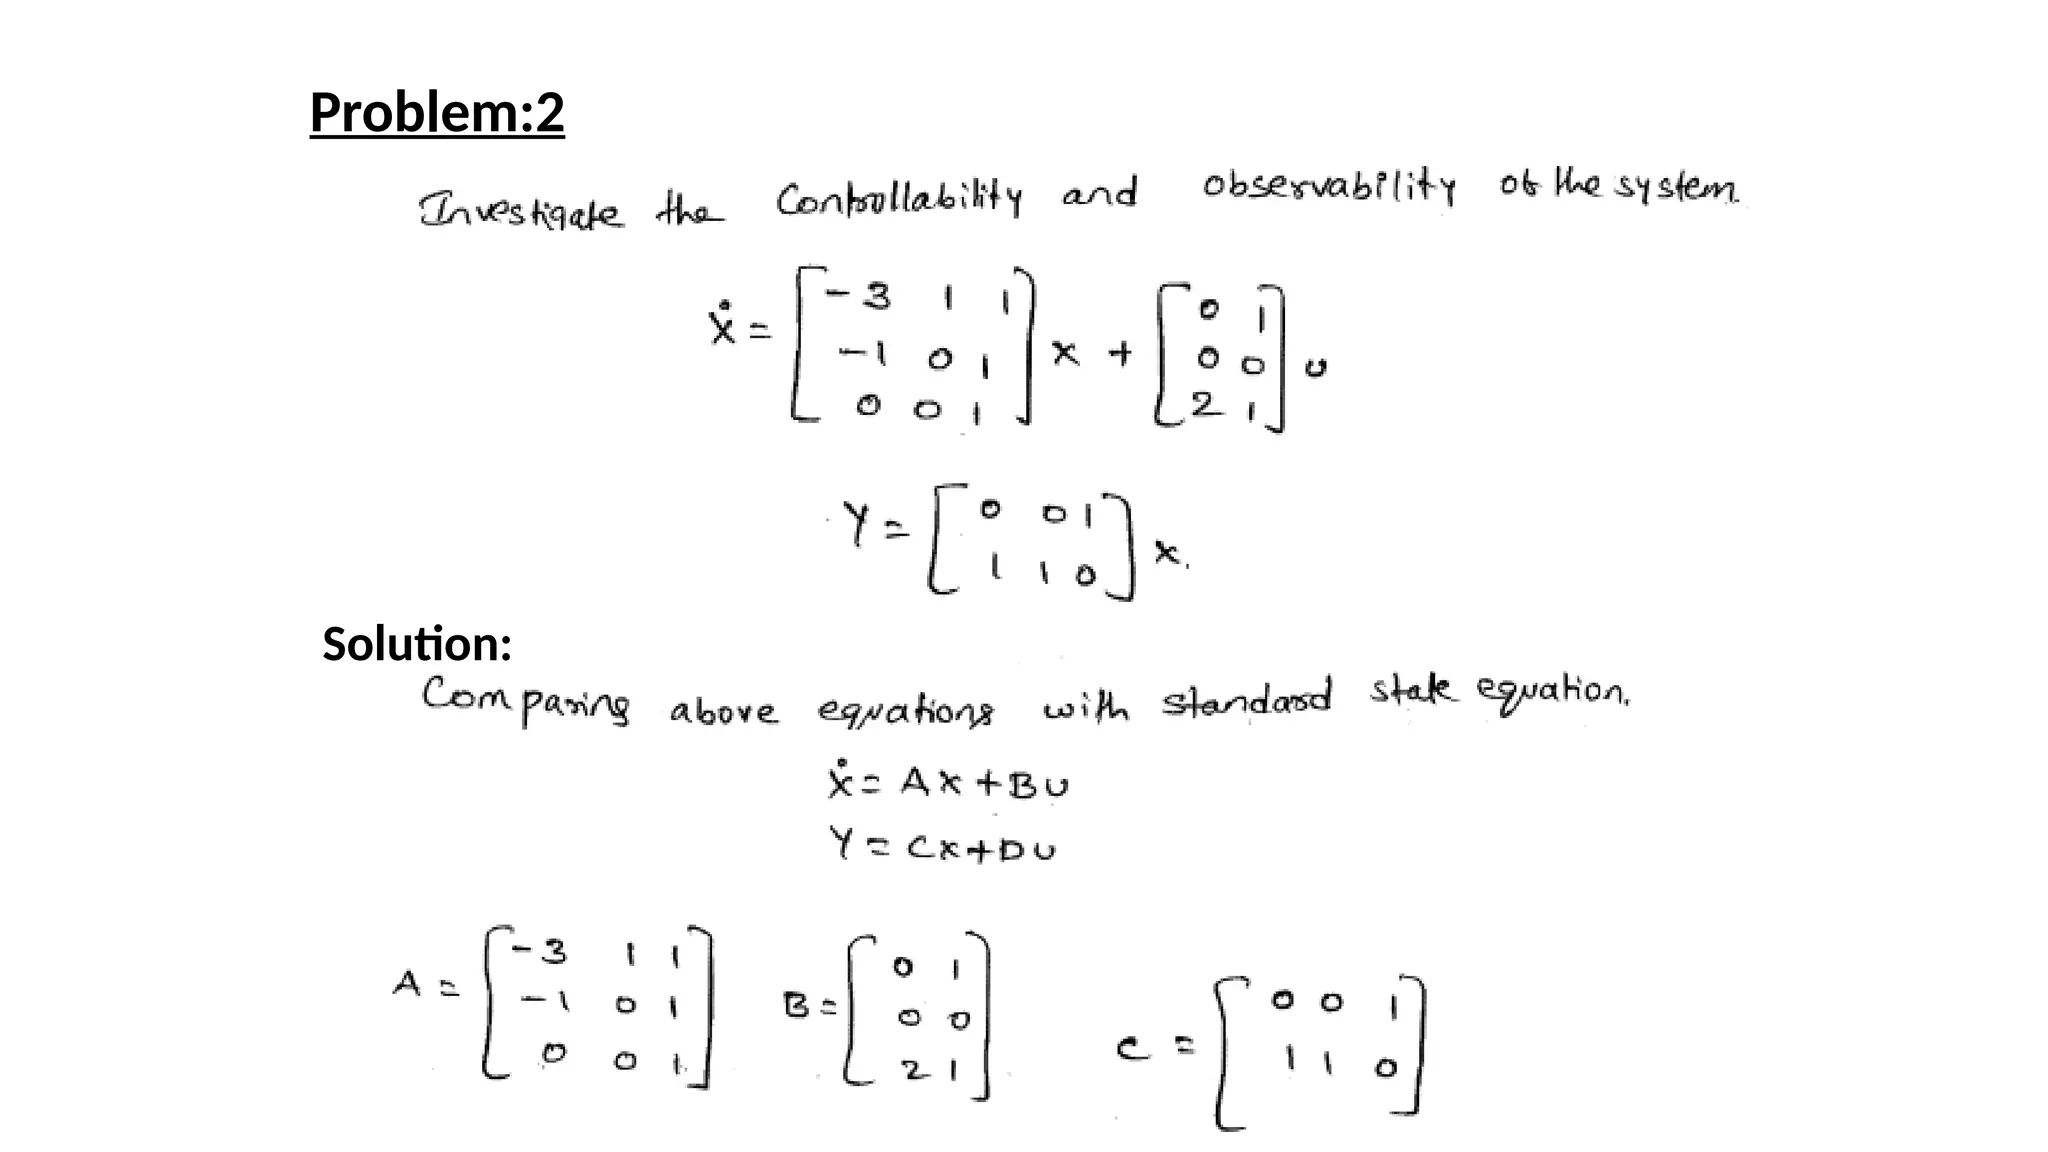 Problem:2
Investigate the Controllability and observability of the system.
Ẋ = [ -3 1 1
-1 0 1
0 0 1 ] x + [ 0 1
0 0
2 1 ] u
Y = [ 0 0 1
1 1 0 ] x.
Solution:
Comparing above equations with standard state equation.
Ẋ = Ax + BU
Y = Cx + DU
A = [ -3 1 1
-1 0 1
0 0 1 ] B = [ 0 1
0 0
2 1 ] C = [ 0 0 1
1 1 0 ]